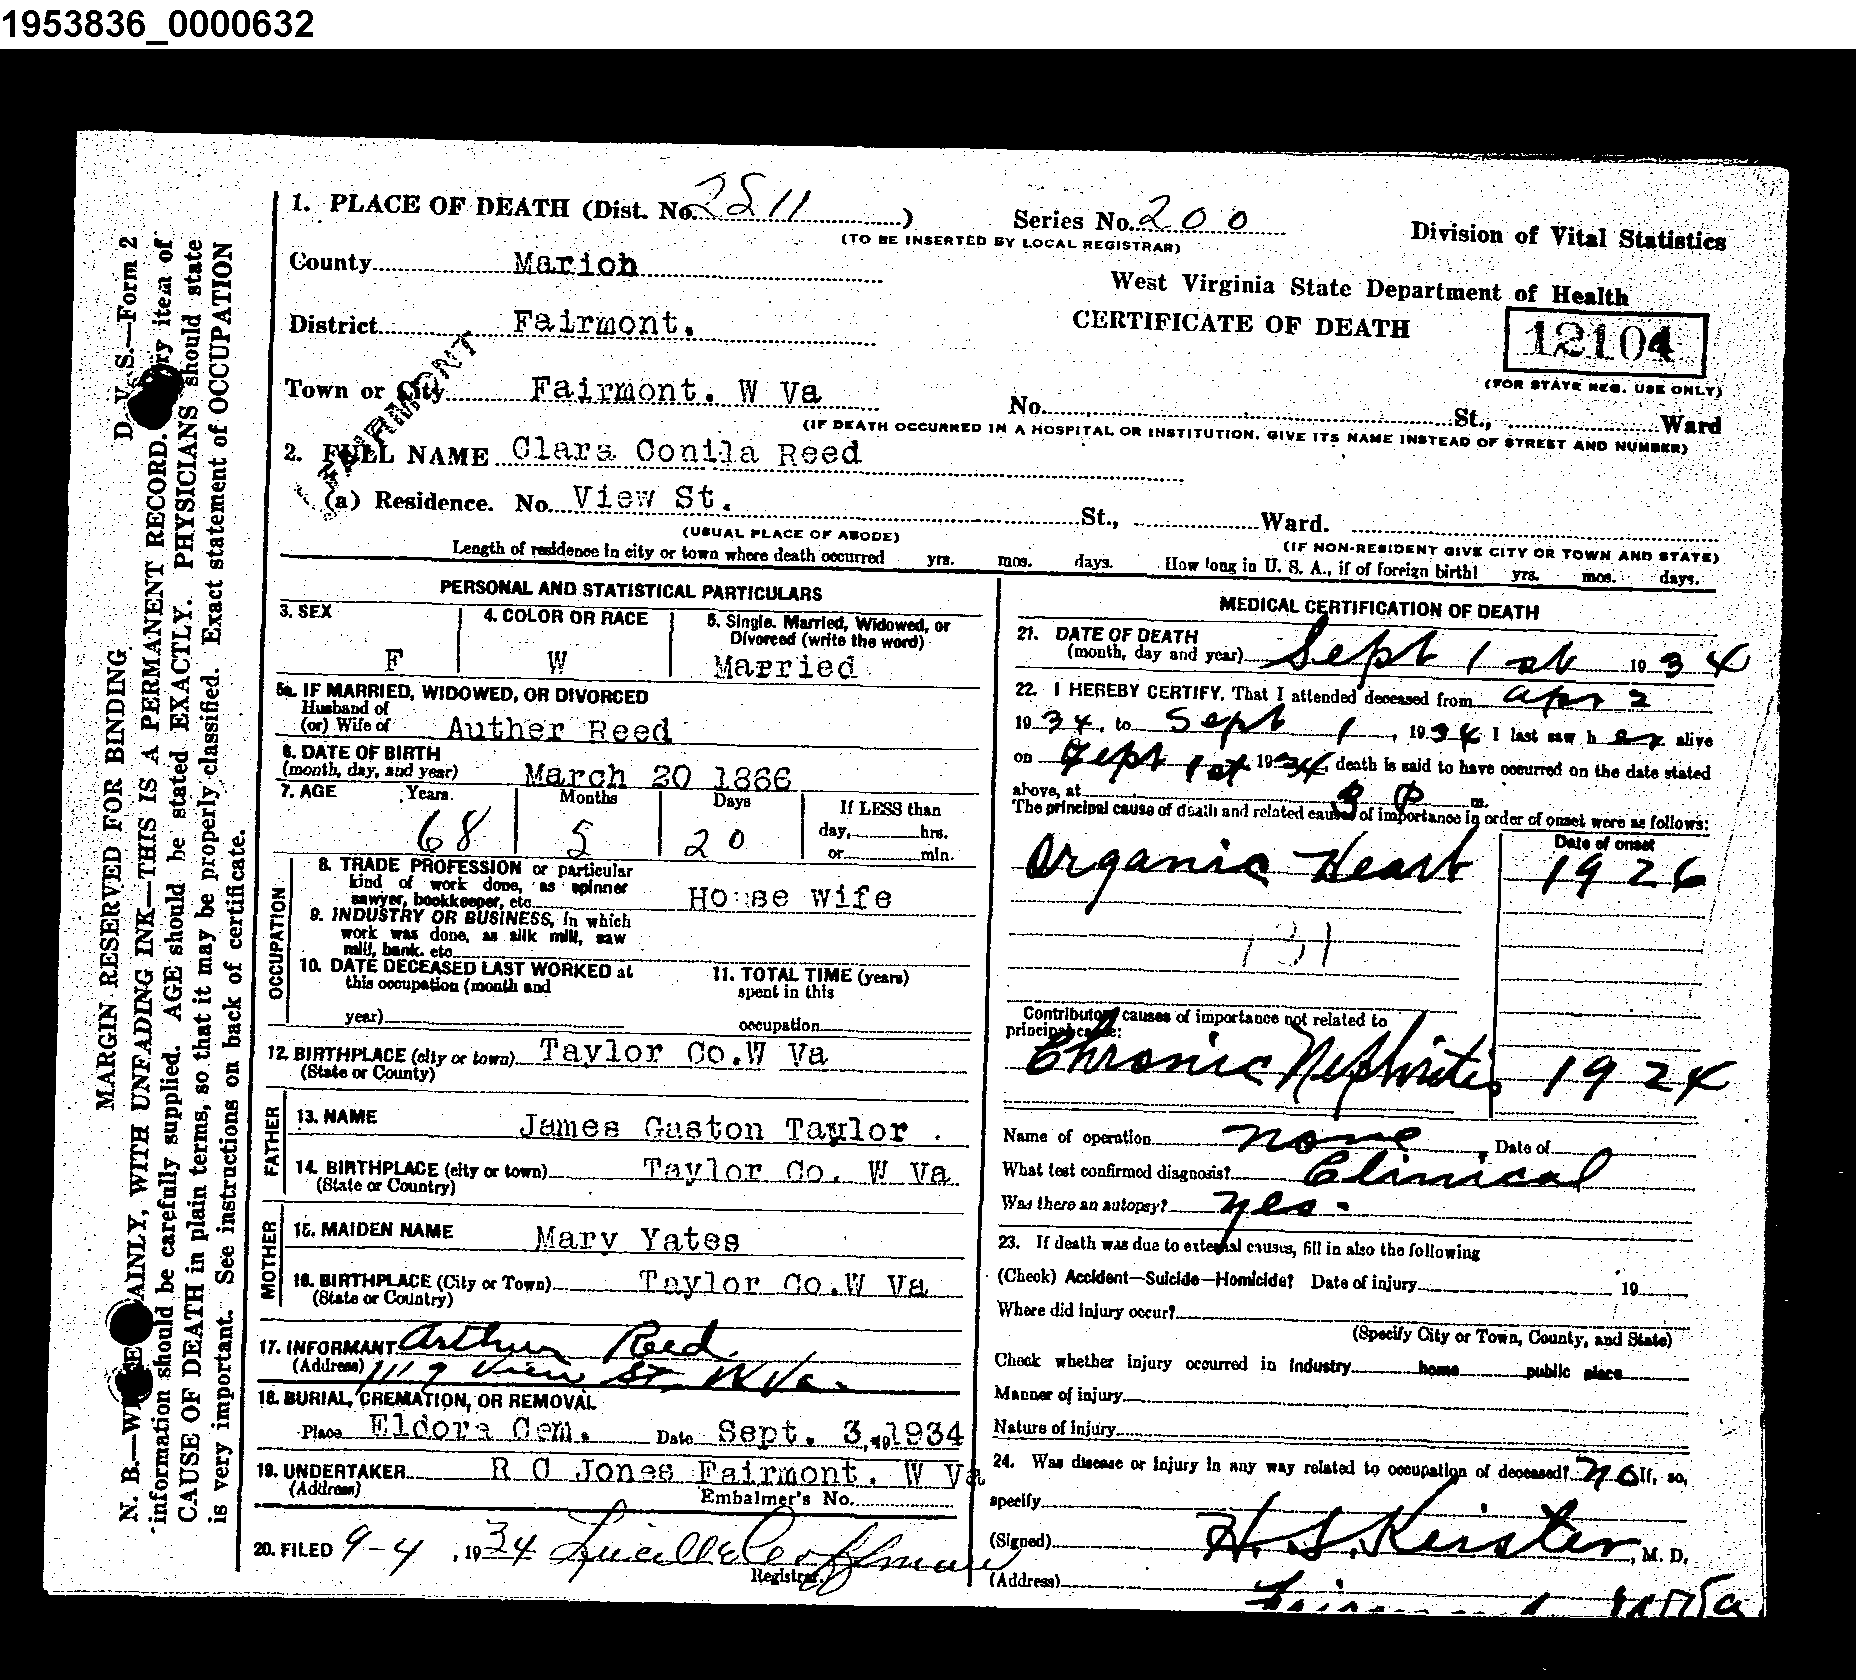 1953836_0000632
1. PLACE OF DEATH (Dist. No. 2511 ) Series No. 200
(TO BE INSERTED BY LOCAL REGISTRAR)
Division of Vital Statistics
County Marion
West Virginia State Department of Health
District Fairmont.
CERTIFICATE OF DEATH
12104
(FOR STATE REG. USE ONLY)
FAIRMONT
Town or City Fairmont. W Va
No. St., Ward
(IF DEATH OCCURRED IN A HOSPITAL OR INSTITUTION, GIVE ITS NAME INSTEAD OF STREET AND NUMBER)
2. FULL NAME Clara Conila Reed
(a) Residence. No. View St. St., Ward.
(USUAL PLACE OF ABODE)
(IF NON-RESIDENT GIVE CITY OR TOWN AND STATE)
Length of residence in city or town where death occurred yrs. mos. days. How long in U. S. A., if of foreign birth? yrs. mos. days.
PERSONAL AND STATISTICAL PARTICULARS
3. SEX
F
4. COLOR OR RACE
W
5. Single. Married, Widowed, or
Divorced (write the word)
Married
5a. IF MARRIED, WIDOWED, OR DIVORCED
Husband of
(or) Wife of Auther Reed
6. DATE OF BIRTH
(month, day, and year) March 20 1866
7. AGE Years Months Days If LESS than
68 5 20 day, hrs.
or min.
OCCUPATION
8. TRADE PROFESSION or particular
kind of work done, as spinner
sawyer, bookkeeper, etc. House wife
9. INDUSTRY OR BUSINESS, in which
work was done, as silk mill, saw
mill, bank, etc.
10. DATE DECEASED LAST WORKED at
this occupation (month and
year)
11. TOTAL TIME (years)
spent in this
occupation
12. BIRTHPLACE (city or town) Taylor Co.W Va
(State or County)
FATHER
13. NAME James Gaston Taylor .
14. BIRTHPLACE (city or town) Taylor Co. W Va
(State or Country)
MOTHER
15. MAIDEN NAME Mary Yates
16. BIRTHPLACE (City or Town) Taylor Co.W Va
(State or Country)
17. INFORMANT Arthur Reed
(Address) 1119 View St. W Va.
18. BURIAL, CREMATION, OR REMOVAL
Place Eldora Cem. Date Sept. 3, 1934
19. UNDERTAKER R C Jones Fairmont. W Va
(Address) Embalmer's No.
20. FILED 9-4, 1934 Lucille Coffman
Registrar.
MEDICAL CERTIFICATION OF DEATH
21. DATE OF DEATH
(month, day and year) Sept 1st 1934
22. I HEREBY CERTIFY, That I attended deceased from Apr 2
1934, to Sept 1, 1934 I last saw her alive
on Sept 1st 1934, death is said to have occurred on the date stated
above, at 3 P m.
The principal cause of death and related causes of importance in order of onset were as follows:
Date of onset
Organic Heart 1926
131
Contributory causes of importance not related to
principal cause:
Chronic Nephritis 1924
Name of operation none Date of
What test confirmed diagnosis? Clinical
Was there an autopsy? yes.
23. If death was due to external causes, fill in also the following
(Check) Accident—Suicide—Homicide? Date of injury 19
Where did injury occur?
(Specify City or Town, County, and State)
Check whether injury occurred in industry home public place
Manner of injury
Nature of injury
24. Was disease or injury in any way related to occupation of deceased? no If, so,
specify
(Signed) H. S. Keister, M. D.
(Address) Fairmont W Va
D. V. S.—Form 2
MARGIN RESERVED FOR BINDING
N. B.—WRITE PLAINLY, WITH UNFADING INK—THIS IS A PERMANENT RECORD. Every item of
information should be carefully supplied. AGE should be stated EXACTLY. PHYSICIANS should state
CAUSE OF DEATH in plain terms, so that it may be properly classified. Exact statement of OCCUPATION
is very important. See instructions on back of certificate.